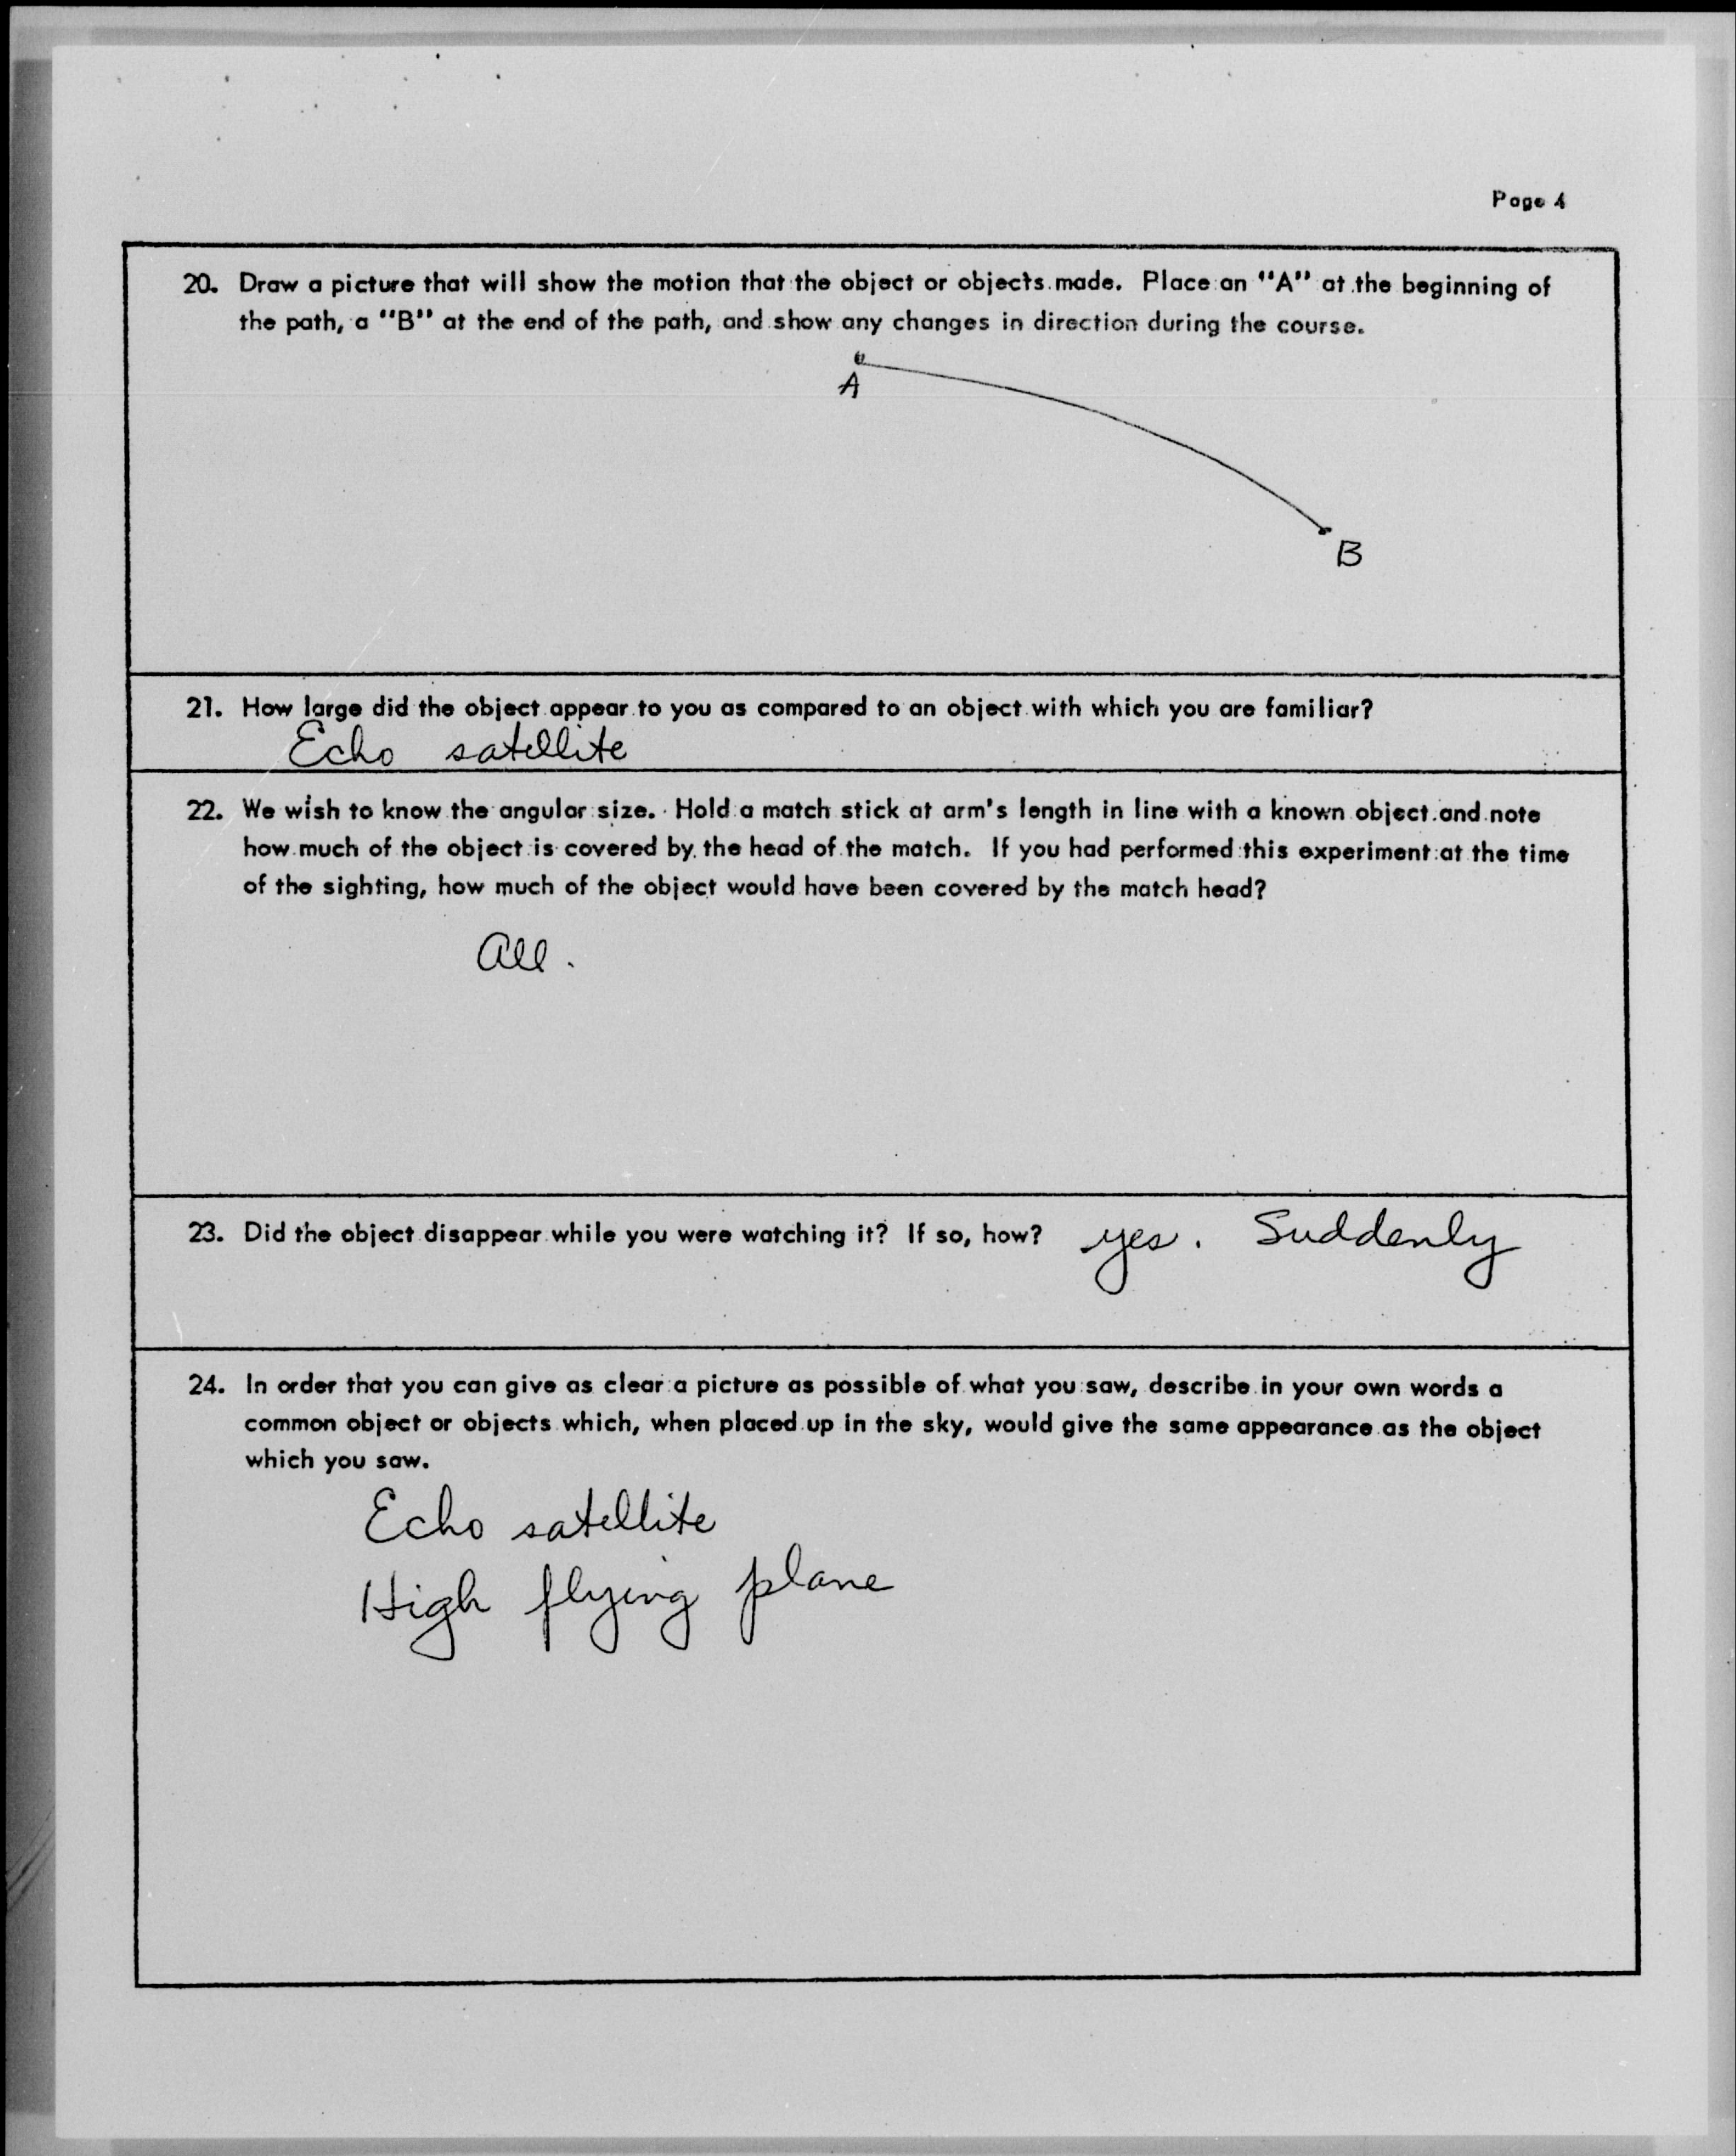 Page 4
20. Draw a picture that will show the motion that the object or objects made. Place an "A" at the beginning of
the path, a "B" at the end of the path, and show any changes in direction during the course.
A
B
21. How large did the object appear to you as compared to an object with which you are familiar?
Echo satellite
22. We wish to know the angular size. Hold a match stick at arm's length in line with a known object and note
how much of the object is covered by the head of the match. If you had performed this experiment at the time
of the sighting, how much of the object would have been covered by the match head?
All.
23. Did the object disappear while you were watching it? If so, how? yes. Suddenly
24. In order that you can give as clear a picture as possible of what you saw, describe in your own words a
common object or objects which, when placed up in the sky, would give the same appearance as the object
which you saw.
Echo satellite
High flying plane